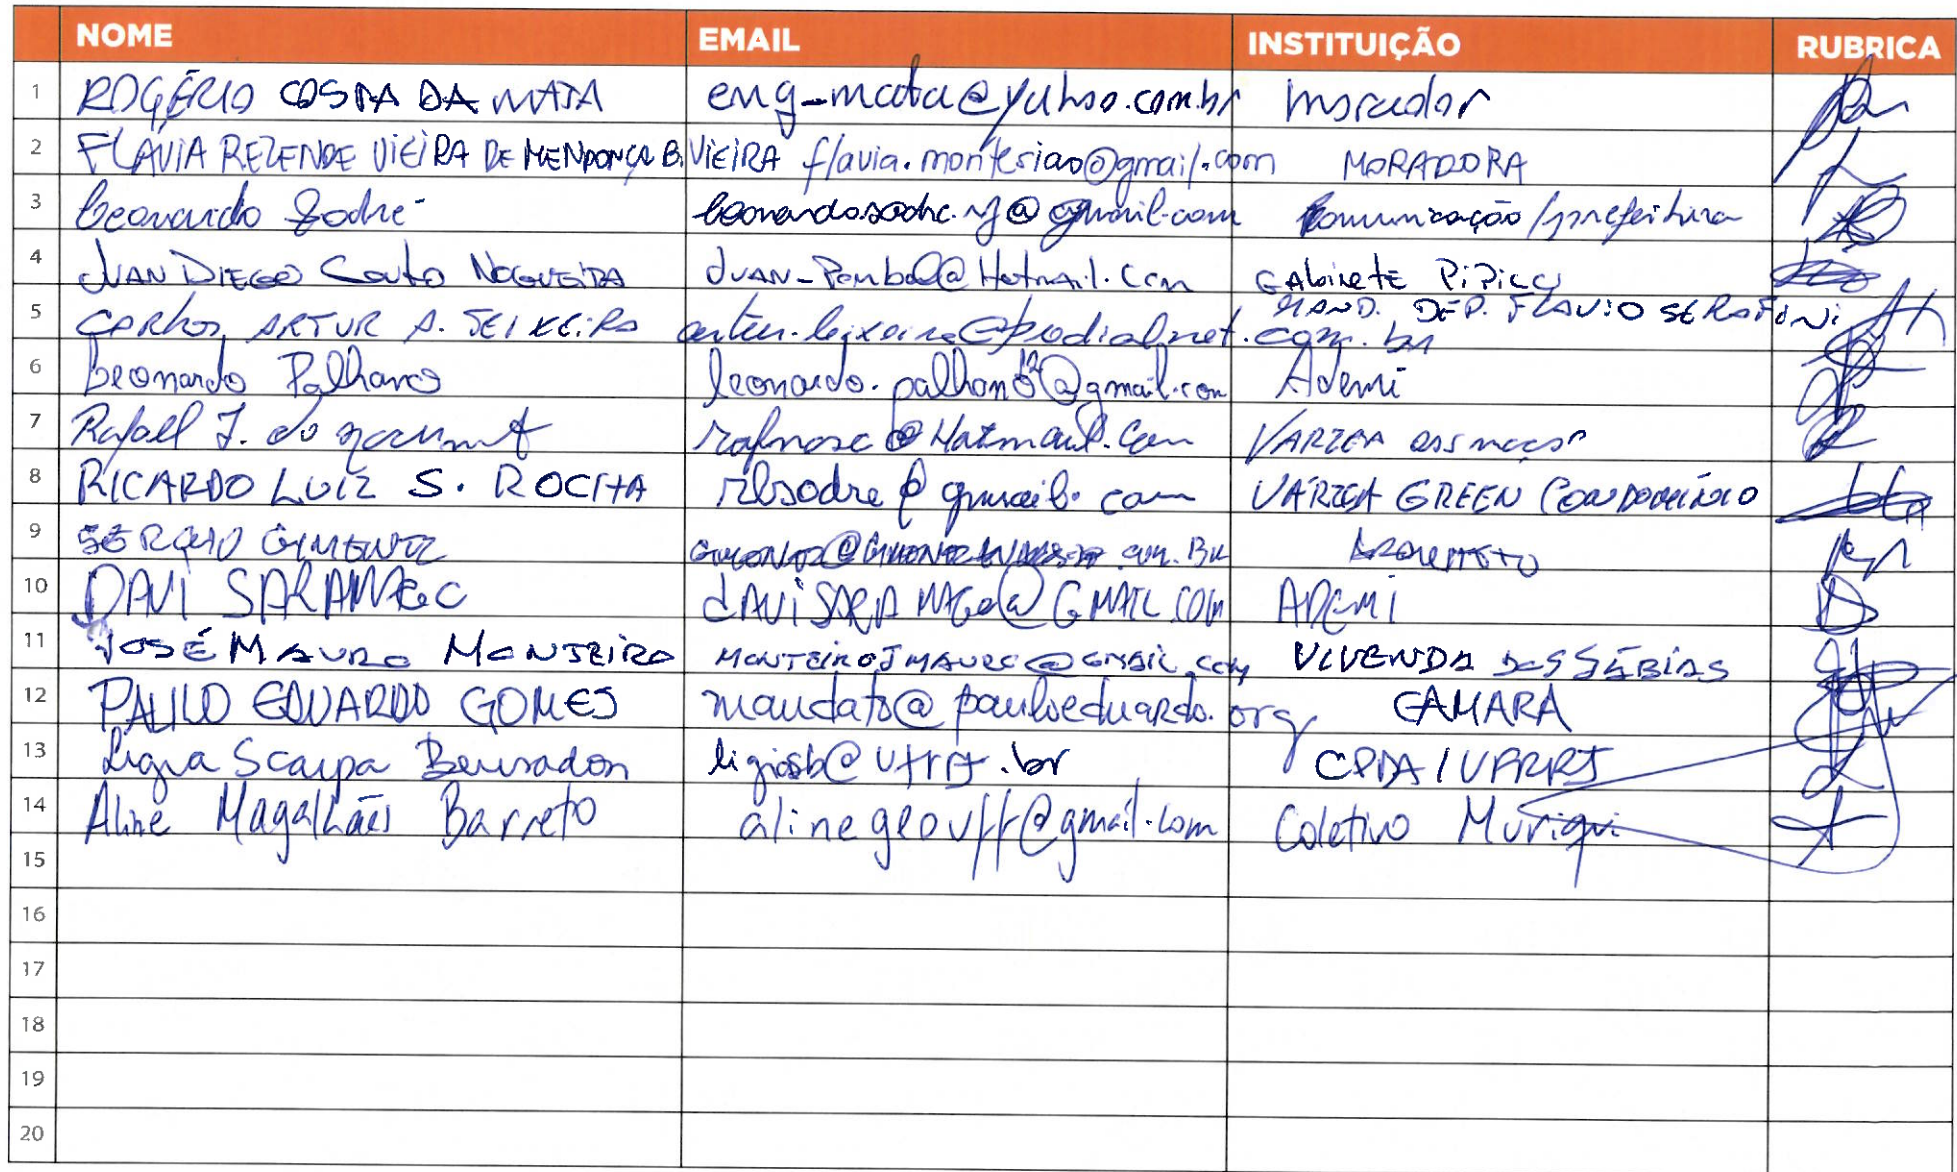 NOME EMAIL INSTITUIÇÃO RUBRICA
1 ROGÉRIO COSTA DA MATA eng-mata@yahoo.com.br morador
2 FLAVIA REZENDE VIEIRA DE MENDONÇA B. VIEIRA flavia.montesiao@gmail.com MORADORA
3 Leonardo Sodré leonardosodre.rj@gmail.com Comunicação/prefeitura
4 JUAN DIEGO Couto NOGUEIRA JUAN-Pombal@Hotmail.com GABINETE PIPICO
5 CARLOS ARTUR A. TEIXEIRA MAND. DEP. FLAVIO SERAFINI
6 Leonardo Palhano leonardo.palhano12@gmail.com Ademi
7 Rafael J. do rafnasc@Hotmail.com VARZEA das moças
8 RICARDO LUIZ S. ROCHA rlsodre@gmail.com VÁRZEA GREEN CONDOMÍNIO
9 SERGIO GIMENEZ ARQUITETO
10 DAVI SARAMAGO DAVISARAMAGO@GMAIL.COM ADEMI
11 JOSÉ MAURO MONTEIRO MONTEIROJMAURO@GMAIL.COM VIVENDA DOS SÁBIAS
12 PAULO EDUARDO GOMES mandato@pauloeduardo.org CAMARA
13 Ligia Scarpa Bensadon ligiasb@ufrrj.br CPDA/UFRRJ
14 Aline Magalhães Barreto alinegeouff@gmail.com Coletivo Muriqui
15
16
17
18
19
20